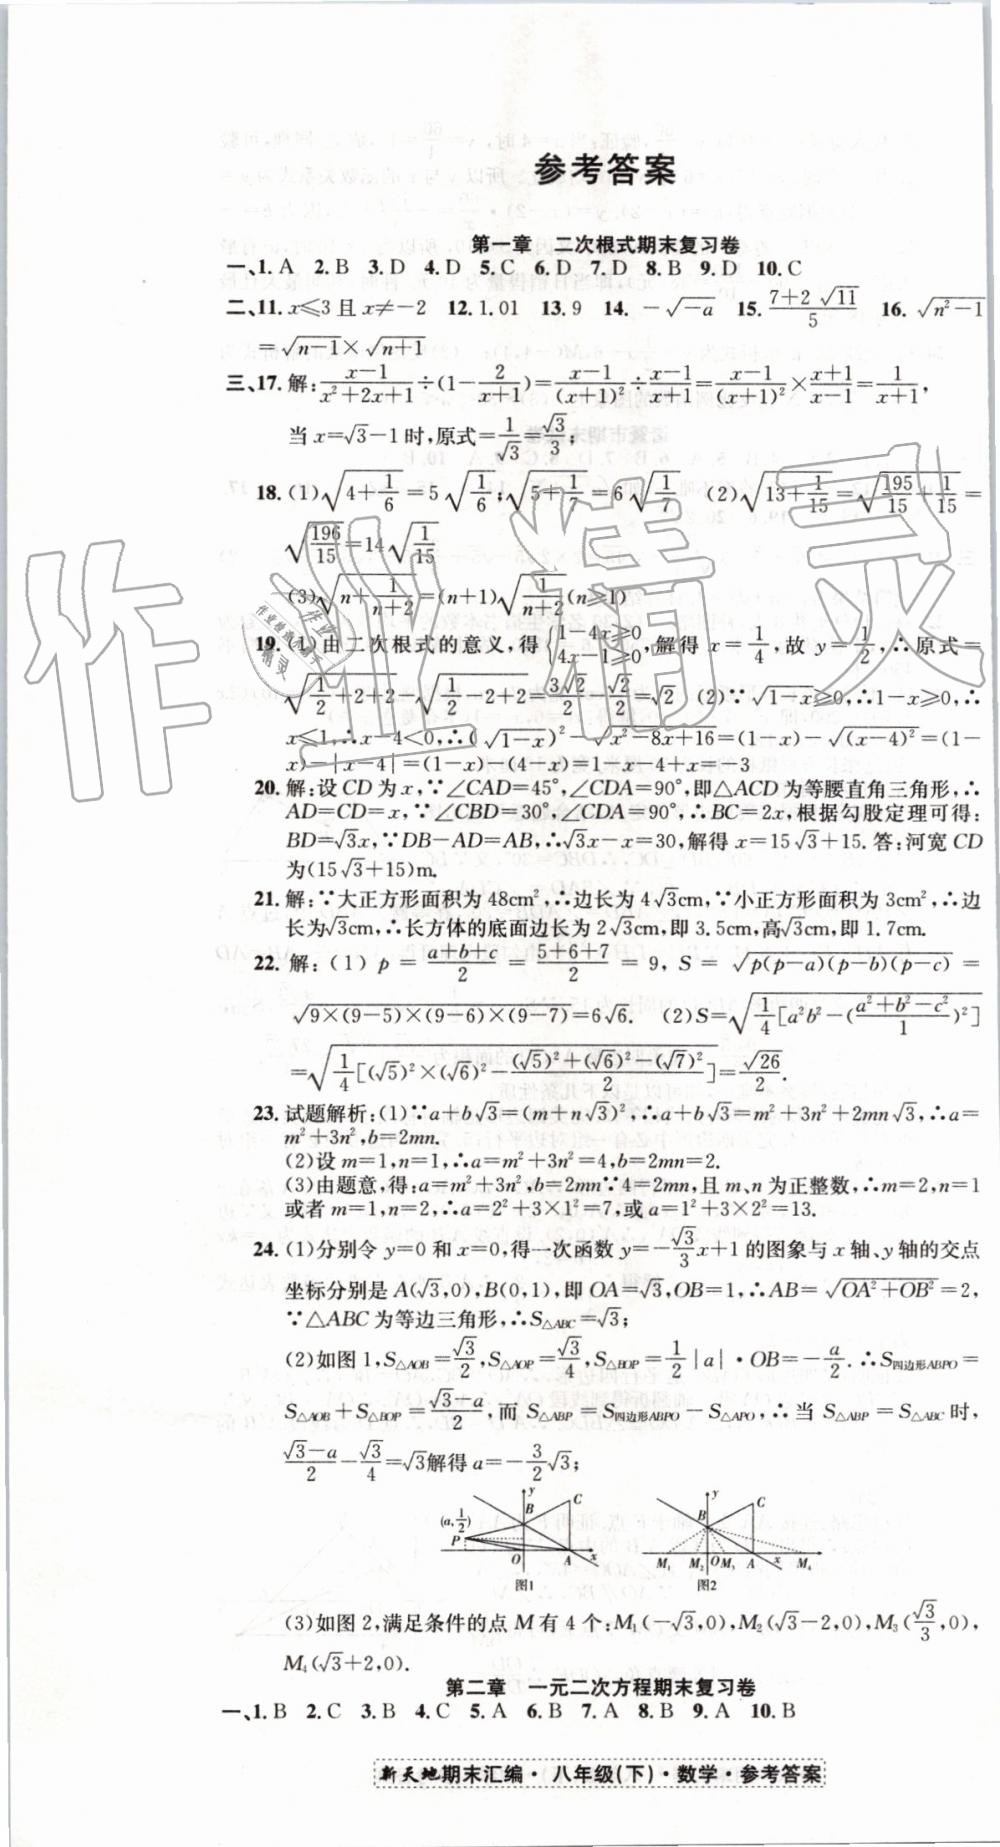 参考答案
第一章 二次根式期末复习卷
一、1. A 2. B 3. D 4. D 5. C 6. D 7. D 8. B 9. D 10. C
二、11. x≤3 且 x≠-2 12. 1.01 13. 9 14. -√(-a) 15. (7+2√11)/5 16. √(n²-1)
=√(n-1)×√(n+1)
三、17. 解: (x-1)/(x²+2x+1)÷(1-2/(x+1))=(x-1)/(x+1)²÷(x-1)/(x+1)=(x-1)/(x+1)²×(x+1)/(x-1)=1/(x+1),
当 x=√3-1 时,原式=1/√3=√3/3;
18. (1)√(4+1/6)=5√(1/6);√(5+1/7)=6√(1/7) (2)√(13+1/15)=√(195/15+1/15)=
√(196/15)=14√(1/15)
(3)√(n+1/(n+2))=(n+1)√(1/(n+2))(n≥1)
19. (1)由二次根式的意义,得{1-4x≥0, 4x-1≥0,解得 x=1/4,故 y=1/2,∴原式=
√(1/2+2+2)-√(1/2-2+2)=3√2/2-√2/2=√2 (2)∵√(1-x)≥0,∴1-x≥0,∴
x≤1,∴x-4<0,∴(√(1-x))²-√(x²-8x+16)=(1-x)-√((x-4)²)=(1-
x)-|x-4|=(1-x)-(4-x)=1-x-4+x=-3
20. 解:设 CD 为 x,∵∠CAD=45°,∠CDA=90°,即△ACD 为等腰直角三角形,∴
AD=CD=x,∵∠CBD=30°,∠CDA=90°,∴BC=2x,根据勾股定理可得:
BD=√3x,∵DB-AD=AB,∴√3x-x=30,解得 x=15√3+15. 答:河宽 CD
为(15√3+15)m.
21. 解:∵大正方形面积为 48cm²,∴边长为 4√3cm,∵小正方形面积为 3cm²,∴边
长为√3cm,∴长方体的底面边长为 2√3cm,即 3.5cm,高√3cm,即 1.7cm.
22. 解:(1) p=(a+b+c)/2=(5+6+7)/2=9, S=√(p(p-a)(p-b)(p-c))=
√(9×(9-5)×(9-6)×(9-7))=6√6. (2)S=√(1/4[a²b²-((a²+b²-c²)/1)²])
=√(1/4[(√5)²×(√6)²-((√5)²+(√6)²-(√7)²)/2])=√26/2.
23. 试题解析:(1)∵a+b√3=(m+n√3)²,∴a+b√3=m²+3n²+2mn√3,∴a=
m²+3n²,b=2mn.
(2)设 m=1,n=1,∴a=m²+3n²=4,b=2mn=2.
(3)由题意,得:a=m²+3n²,b=2mn∵4=2mn,且 m、n 为正整数,∴m=2,n=1
或者 m=1,n=2,∴a=2²+3×1²=7,或 a=1²+3×2²=13.
24. (1)分别令 y=0 和 x=0,得一次函数 y=-√3/3x+1 的图象与 x 轴、y 轴的交点
坐标分别是 A(√3,0),B(0,1),即 OA=√3,OB=1,∴AB=√(OA²+OB²)=2,
∵△ABC 为等边三角形,∴S△ABC=√3;
(2)如图 1,S△AOB=√3/2,S△AOP=√3/4,S△BOP=1/2|a|·OB=-a/2. ∴S四边形ABPO=
S△AOB+S△BOP=(√3-a)/2. 而 S△ABP=S四边形ABPO-S△APO,∴当 S△ABP=S△ABC时,
(√3-a)/2-√3/4=√3解得 a=-3/2√3;
y B C (a,1/2) P O A x 图1
y B C M₁ M₂ O M₃ A x M₄ 图2
(3)如图 2,满足条件的点 M 有 4 个:M₁(-√3,0),M₂(√3-2,0),M₃(√3/3,0),
M₄(√3+2,0).
第二章 一元二次方程期末复习卷
一、1. B 2. C 3. B 4. C 5. A 6. B 7. A 8. B 9. A 10. B
新天地期末汇编·八年级(下)·数学·参考答案